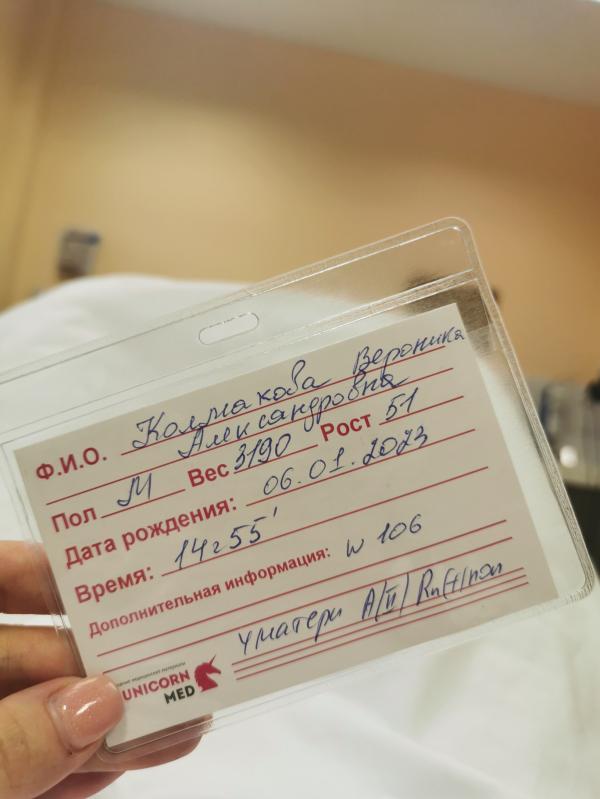 Ф.И.О. Колмакова Вероника
Александровна
Пол М Вес 3190 Рост 51
Дата рождения: 06.01.2023
Время: 14г55'
Дополнительная информация: w 106
у матери A(II) Rh(+) пол
UNICORN
MED